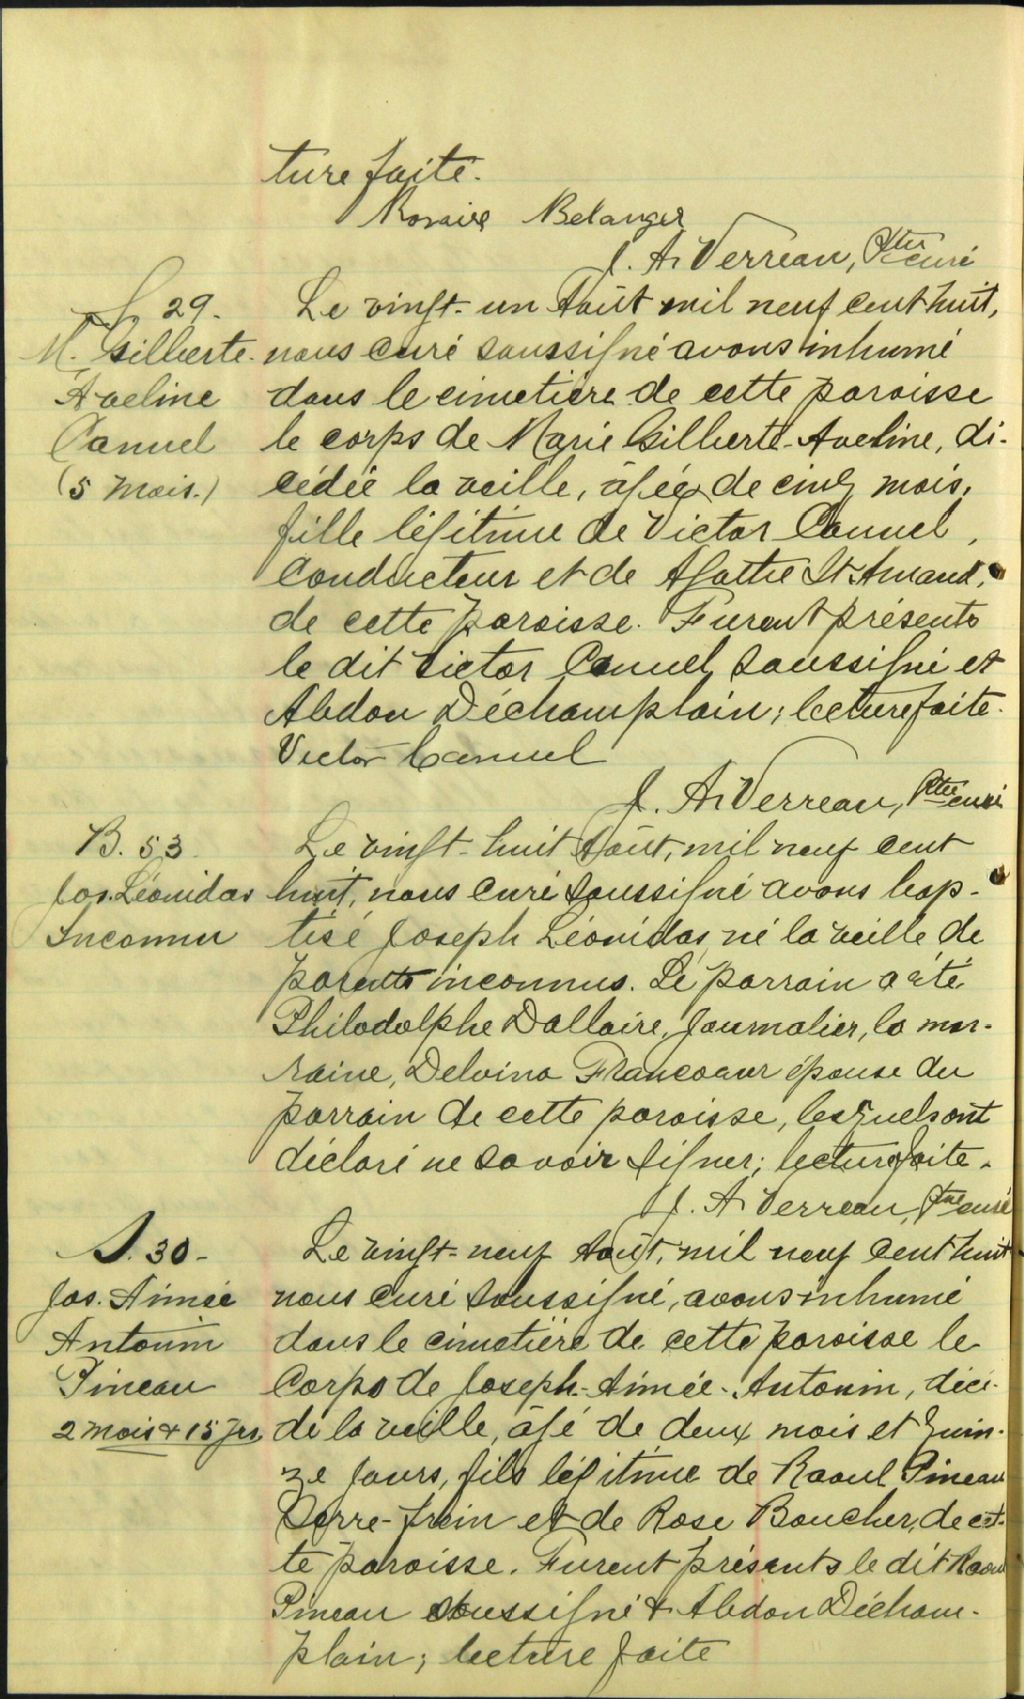 ture faite.
Rosaire Belanger
J. A. Verreau, Ptre curé
S. 29.
M. Gilberte
Aveline
Canuel
(5 mois.)
Le vingt-un Août mil neuf cent huit,
nous curé soussigné avons inhumé
dans le cimetière de cette paroisse
le corps de Marie Gilberte-Aveline, dé-
cédée la veille, âgée de cinq mois,
fille légitime de Victor Canuel,
Conducteur et de Agathe St Amand,
de cette paroisse. Furent présents
le dit Victor Canuel, soussigné et
Abdon Déchamplain; lecture faite.
Victor Canuel
J. A. Verreau, Ptre curé
B. 53
Jos. Léonidas
Inconnu
Le vingt-huit Août, mil neuf cent
huit, nous curé soussigné avons bap-
tisé Joseph Léonidas, né la veille de
parents inconnus. Le parrain a été
Philadelphe Dallaire, journalier, la mar-
raine, Delvina Francoeur épouse du
parrain de cette paroisse, lesquels ont
déclaré ne savoir signer; lecture faite.
J. A. Verreau, Ptre curé
S. 30-
Jos. Aimée
Antonin
Pineau
2 mois & 15 jrs
Le vingt-neuf Août, mil neuf cent huit
nous curé soussigné, avons inhumé
dans le cimetière de cette paroisse le
Corps de Joseph-Aimée-Antonin, décé-
dé la veille, âgé de deux mois et quin-
ze jours, fils légitime de Raoul Pineau
Serre-frein et de Rose Boucher, de cet-
te paroisse. Furent présents le dit Raoul
Pineau soussigné & Abdon Décham-
plain; lecture faite